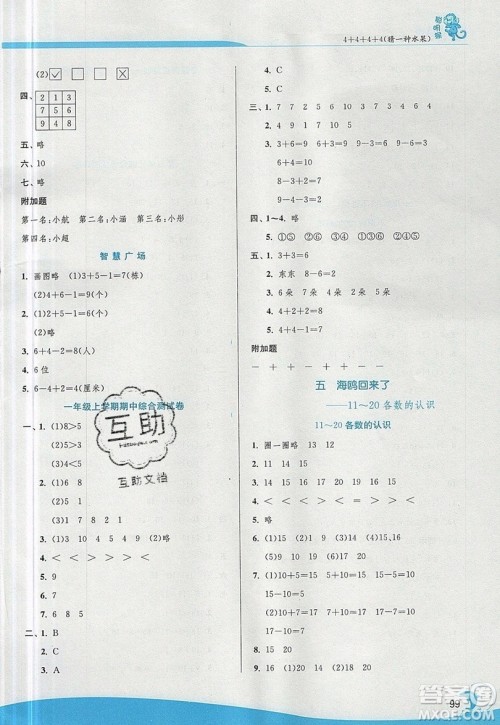 4+4+4+4(猜一种水果)
(2)☑ □ □ □
四、2 1 3
7 5 9
8 6 4
五、略
六、10
七、略
附加题
第一名:小航 第二名:小涵 第三名:小彤
第四名:小超
智慧广场
1. 画图略 (1)3+5-1=7(栋)
(2)4+6-1=9(个)
(2)略
3. 6+4-2=8(人)
4. 略
5. 6-2+4=8(厘米)
一年级上学期期中综合测试卷
一、1. (1)8>5
(2)5<9
2. (1)6 7 10
(2)1 5
(3)1 7 8 2 1
3. (1)3 9 10 4 5
4. < < > > < >
5. 9
6. 7
7. 6 8 5
二、1. B
2. C
3. A
4. C
5. C
三、1. 7 7 9 5 10 9 4 9
2. 10 8 3 6 6 10 2 4
3. 3+6=9 6+3=9 9-6=3 9-3=6
6+4=10
8-3=5
9-3-2=4
四、1~4. 略
5. ①⑤ ②⑥ ①⑤ ②⑥
五、1. 3+3=6
2. 东东 8-6=2
3. 6 朵 7 朵 8 朵 4 朵
4. 4+2+2=8
附加题
- + + - + -
五 海鸥回来了
——11~20 各数的认识
11~20 各数的认识
1. 圈一圈略 13 15
2. 11 14 15
3. 略
4. 12 15 19
5. > < > < > <
6. (1)15 (2)14 (4)15、16
(2)19 (3)0 20
7. (1)10+5=15 5+10=15
15-5=10 15-10=5
(2)10+7=17 7+10=17
17-7=10
17-10=7
8. (1)17 (2)20
9. 16 15 12
99
互助
互助文档